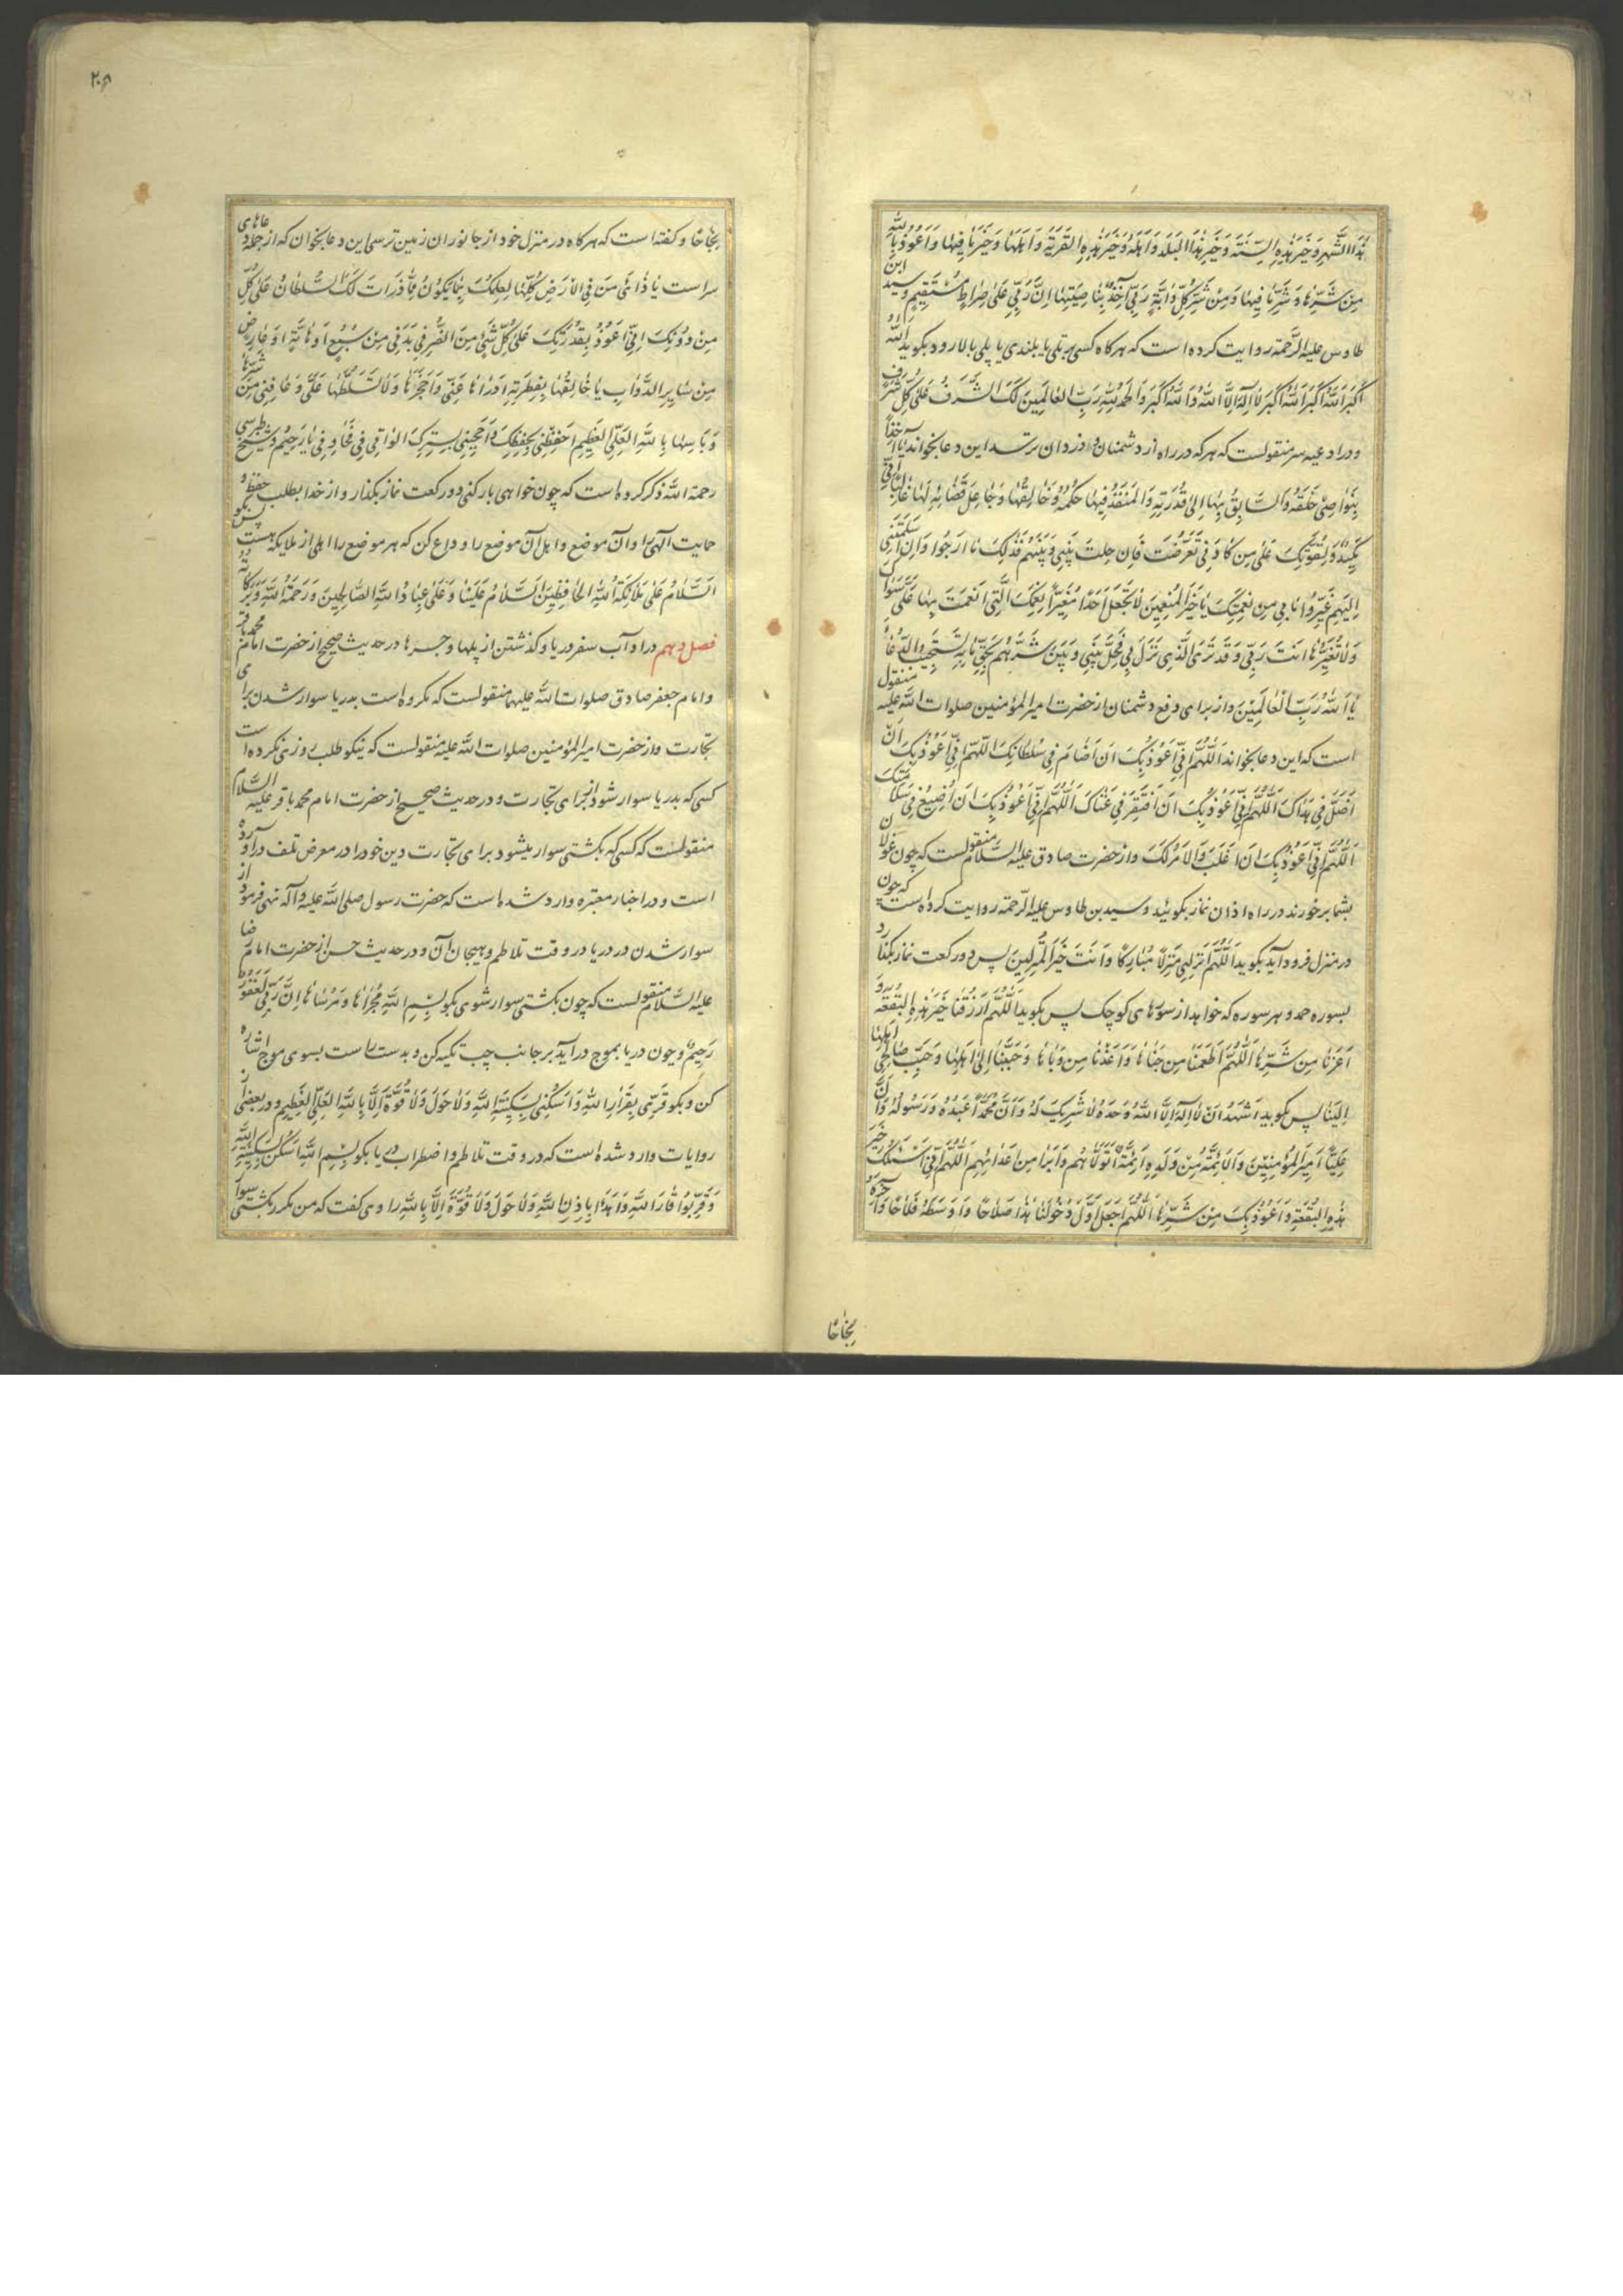 هٰذَا الشَّهْرِ وَخَيْرَ هٰذِهِ السَّنَةِ وَخَيْرَ هٰذَا الْبَلَدِ وَاَهْلِهِ وَخَيْرَ هٰذِهِ الْقَرْيَةِ وَاَهْلِهَا وَخَيْرَ مَا فِيهَا وَاَعُوذُ بِاللّٰهِ
مِنْ شَرِّهَا وَشَرِّ مَا فِيهَا وَمِنْ شَرِّ كُلِّ دَابَّةٍ رَبِّي آخِذٌ بِنَاصِيَتِهَا اِنَّ رَبِّي عَلٰى صِرَاطٍ مُسْتَقِيمٍ و سید ابن
طاوس علیه الرحمة روایت کرده است که هرکاه کسی بر تلی یا بلندی یا پلی بالا رود بکوید اَللّٰهُ
اَكْبَرُ اَللّٰهُ اَكْبَرُ اَللّٰهُ اَكْبَرُ لَا اِلٰهَ اِلَّا اللّٰهُ وَاللّٰهُ اَكْبَرُ وَالْحَمْدُ لِلّٰهِ رَبِّ الْعَالَمِينَ لَكَ الشَّرَفُ عَلٰى كُلِّ شَرَفٍ
و در ادعیه سر منقولست که هر که در راه از دشمنان و دزدان ترسد این دعا بخواند يَا آخِذًا
بِنَوَاصِي خَلْقِهِ وَالسَّابِقُ بِهَا اِلٰى قُدْرَتِهِ وَالْمُنْفِذُ فِيهَا حُكْمَهُ وَخَالِقُهَا وَجَاعِلُ قَضَائِهِ لَهَا غَالِبًا اِنِّي
مَكِيدٌ وَلِقُوَّتِكَ عَلٰى مَنْ كَادَنِي تَعَرَّضْتُ فَاِنْ حُلْتَ بَيْنِي وَبَيْنَهُمْ فَذٰلِكَ مَا اَرْجُوا وَاِنْ اَسْلَمْتَنِي
اِلَيْهِمْ غَيَّرُوا مَا بِي مِنْ نِعْمَتِكَ يَا خَيْرَ الْمُنْعِمِينَ لَا تَجْعَلْ اَحَدًا مُغَيِّرًا نِعَمَكَ الَّتِي اَنْعَمْتَ بِهَا عَلَيَّ سِوَاكَ
وَلَا تُغَيِّرْهَا اَنْتَ رَبِّي وَقَدْ تَرَى الَّذِي نَزَلَ بِي فَحُلْ بَيْنِي وَبَيْنَ شَرِّهِمْ بِحَقِّ مَا بِهِ تَسْتَجِيبُ الدُّعَاءَ
يَا اَللّٰهُ رَبَّ الْعَالَمِينَ و از برای دفع دشمنان از حضرت امیرالمؤمنین صلوات اللّٰه علیه منقول
است که این دعا بخواند اَللّٰهُمَّ اِنِّي اَعُوذُ بِكَ اَنْ اُضَامَ فِي سُلْطَانِكَ اَللّٰهُمَّ اِنِّي اَعُوذُ بِكَ اَنْ
اَضِلَّ فِي هُدَاكَ اَللّٰهُمَّ اِنِّي اَعُوذُ بِكَ اَنْ اَفْتَقِرَ فِي غِنَاكَ اَللّٰهُمَّ اِنِّي اَعُوذُ بِكَ اَنْ اَضِيعَ فِي سَلَامَتِكَ
اَللّٰهُمَّ اِنِّي اَعُوذُ بِكَ اَنْ اُغْلَبَ وَالْاَمْرُ لَكَ و از حضرت صادق علیه السلام منقولست که چون غولان
بشما برخورند در راه اذان نماز بکوئید و سید بن طاوس علیه الرحمة روایت کرده است که چون
در منزل فرود آید بکوید اَللّٰهُمَّ اَنْزِلْنِي مُنْزَلًا مُبَارَكًا وَاَنْتَ خَيْرُ الْمُنْزِلِينَ پس دو رکعت نماز بکذارد
بسوره حمد و هر سوره که خواهد از سورهای کوچک پس بکوید اَللّٰهُمَّ ارْزُقْنَا خَيْرَ هٰذِهِ الْبُقْعَةِ و
اَعِذْنَا مِنْ شَرِّهَا اَللّٰهُمَّ اَطْعِمْنَا مِنْ جَنَاهَا وَاَعِذْنَا مِنْ وَبَاهَا وَحَبِّبْنَا اِلٰى اَهْلِهَا وَحَبِّبْ صَالِحِي اَهْلِهَا
اِلَيْنَا پس بکوید اَشْهَدُ اَنْ لَا اِلٰهَ اِلَّا اللّٰهُ وَحْدَهُ لَا شَرِيكَ لَهُ وَاَنَّ مُحَمَّدًا عَبْدُهُ وَرَسُولُهُ وَاَنَّ
عَلِيًّا اَمِيرُ الْمُؤْمِنِينَ وَالْاَئِمَّةَ مِنْ وَلَدِهِ اَئِمَّةٌ اَتَوَلَّاهُمْ وَاَبْرَأُ مِنْ اَعْدَائِهِمْ اَللّٰهُمَّ اِنِّي اَسْئَلُكَ خَيْرَ
هٰذِهِ الْبُقْعَةِ وَاَعُوذُ بِكَ مِنْ شَرِّهَا اَللّٰهُمَّ اجْعَلْ اَوَّلَ دُخُولِنَا هٰذَا صَلَاحًا وَاَوْسَطَهُ فَلَاحًا وَآخِرَهُ
نجاحا
۲۰۸
نَجَاحًا و کفته است که هرکاه در منزل خود از جانوران زمین ترسی این دعا بخوان که از جمله دعاهای
سر است يَا ذَارِئَ مَنْ فِي الْاَرْضِ كُلِّهَا لِعِلْمِكَ بِمَا يَكُونُ مِمَّا ذَرَأْتَ لَكَ السُّلْطَانُ عَلٰى كُلِّ
مَنْ دُونَكَ اِنِّي اَعُوذُ بِقُدْرَتِكَ عَلٰى كُلِّ شَيْءٍ مِنَ الضُّرِّ فِي بَدَنِي مِنْ سَبُعٍ اَوْ هَامَّةٍ اَوْ عَارِضٍ
مِنْ سَايِرِ الدَّوَابِّ يَا خَالِقَهَا بِفِطْرَتِهِ اِدْرَأْهَا عَنِّي وَاحْجُزْهَا وَلَا تُسَلِّطْهَا عَلَيَّ وَعَافِنِي مِنْ شَرِّهَا
وَبَأْسِهَا يَا اَللّٰهُ الْعَلِيُّ الْعَظِيمُ احْفَظْنِي بِحِفْظِكَ وَاحْجُبْنِي بِسِتْرِكَ الْوَاقِي فِي مَخَاوِفِي يَا رَحِيمُ و شیخ طبرسی
رحمة اللّٰه ذکر کرده است که چون خواهی بار کنی دو رکعت نماز بکذار و از خدا بطلب حفظ و
حمایت الهی را و آن موضع و اهل آن موضع را وداع کن که هر موضع را اهلی از ملایکه هست پس بکو
اَلسَّلَامُ عَلٰى مَلَائِكَةِ اللّٰهِ الْحَافِظِينَ اَلسَّلَامُ عَلَيْنَا وَعَلٰى عِبَادِ اللّٰهِ الصَّالِحِينَ وَرَحْمَةُ اللّٰهِ وَبَرَكَاتُهُ
فصل دهم در اداب سفر دریا و کذشتن از پلها و جسرها در حدیث صحیح از حضرت امام محمد باقر
و امام جعفر صادق صلوات اللّٰه علیهما منقولست که مکروه است بدریا سوار شدن برای
تجارت و از حضرت امیرالمؤمنین صلوات اللّٰه علیه منقولست که نیکو طلب روزی نکرده است
کسی که بدریا سوار شود از برای تجارت و در حدیث صحیح از حضرت امام محمد باقر علیه السلام
منقولست که کسی که بکشتی سوار میشود برای تجارت دین خود را در معرض تلف درآورده
است و در اخبار معتبره وارد شده است که حضرت رسول صلی اللّٰه علیه و آله نهی فرمود از
سوار شدن در دریا در وقت تلاطم و هیجان آن و در حدیث حسن از حضرت امام رضا
علیه السلام منقولست که چون بکشتی سوار شوی بکو بِسْمِ اللّٰهِ مَجْرَاهَا وَمُرْسَاهَا اِنَّ رَبِّي لَغَفُورٌ
رَحِيمٌ و چون دریا بموج درآید بر جانب چپ تکیه کن و بدست راست بسوی موج اشاره
کن و بکو قَرِّي بِقَرَارِ اللّٰهِ وَاسْكُنِي بِسَكِينَةِ اللّٰهِ وَلَا حَوْلَ وَلَا قُوَّةَ اِلَّا بِاللّٰهِ الْعَلِيِّ الْعَظِيمِ و در بعضی از
روایات وارد شده است که در وقت تلاطم و اضطراب دریا بکو بِسْمِ اللّٰهِ اُسْكُنْ بِسَكِينَةِ اللّٰهِ
وَقِرَّ بِوَقَارِ اللّٰهِ وَاهْدَأْ بِاِذْنِ اللّٰهِ وَلَا حَوْلَ وَلَا قُوَّةَ اِلَّا بِاللّٰهِ راوی کفت که من مکرر بکشتی سوار